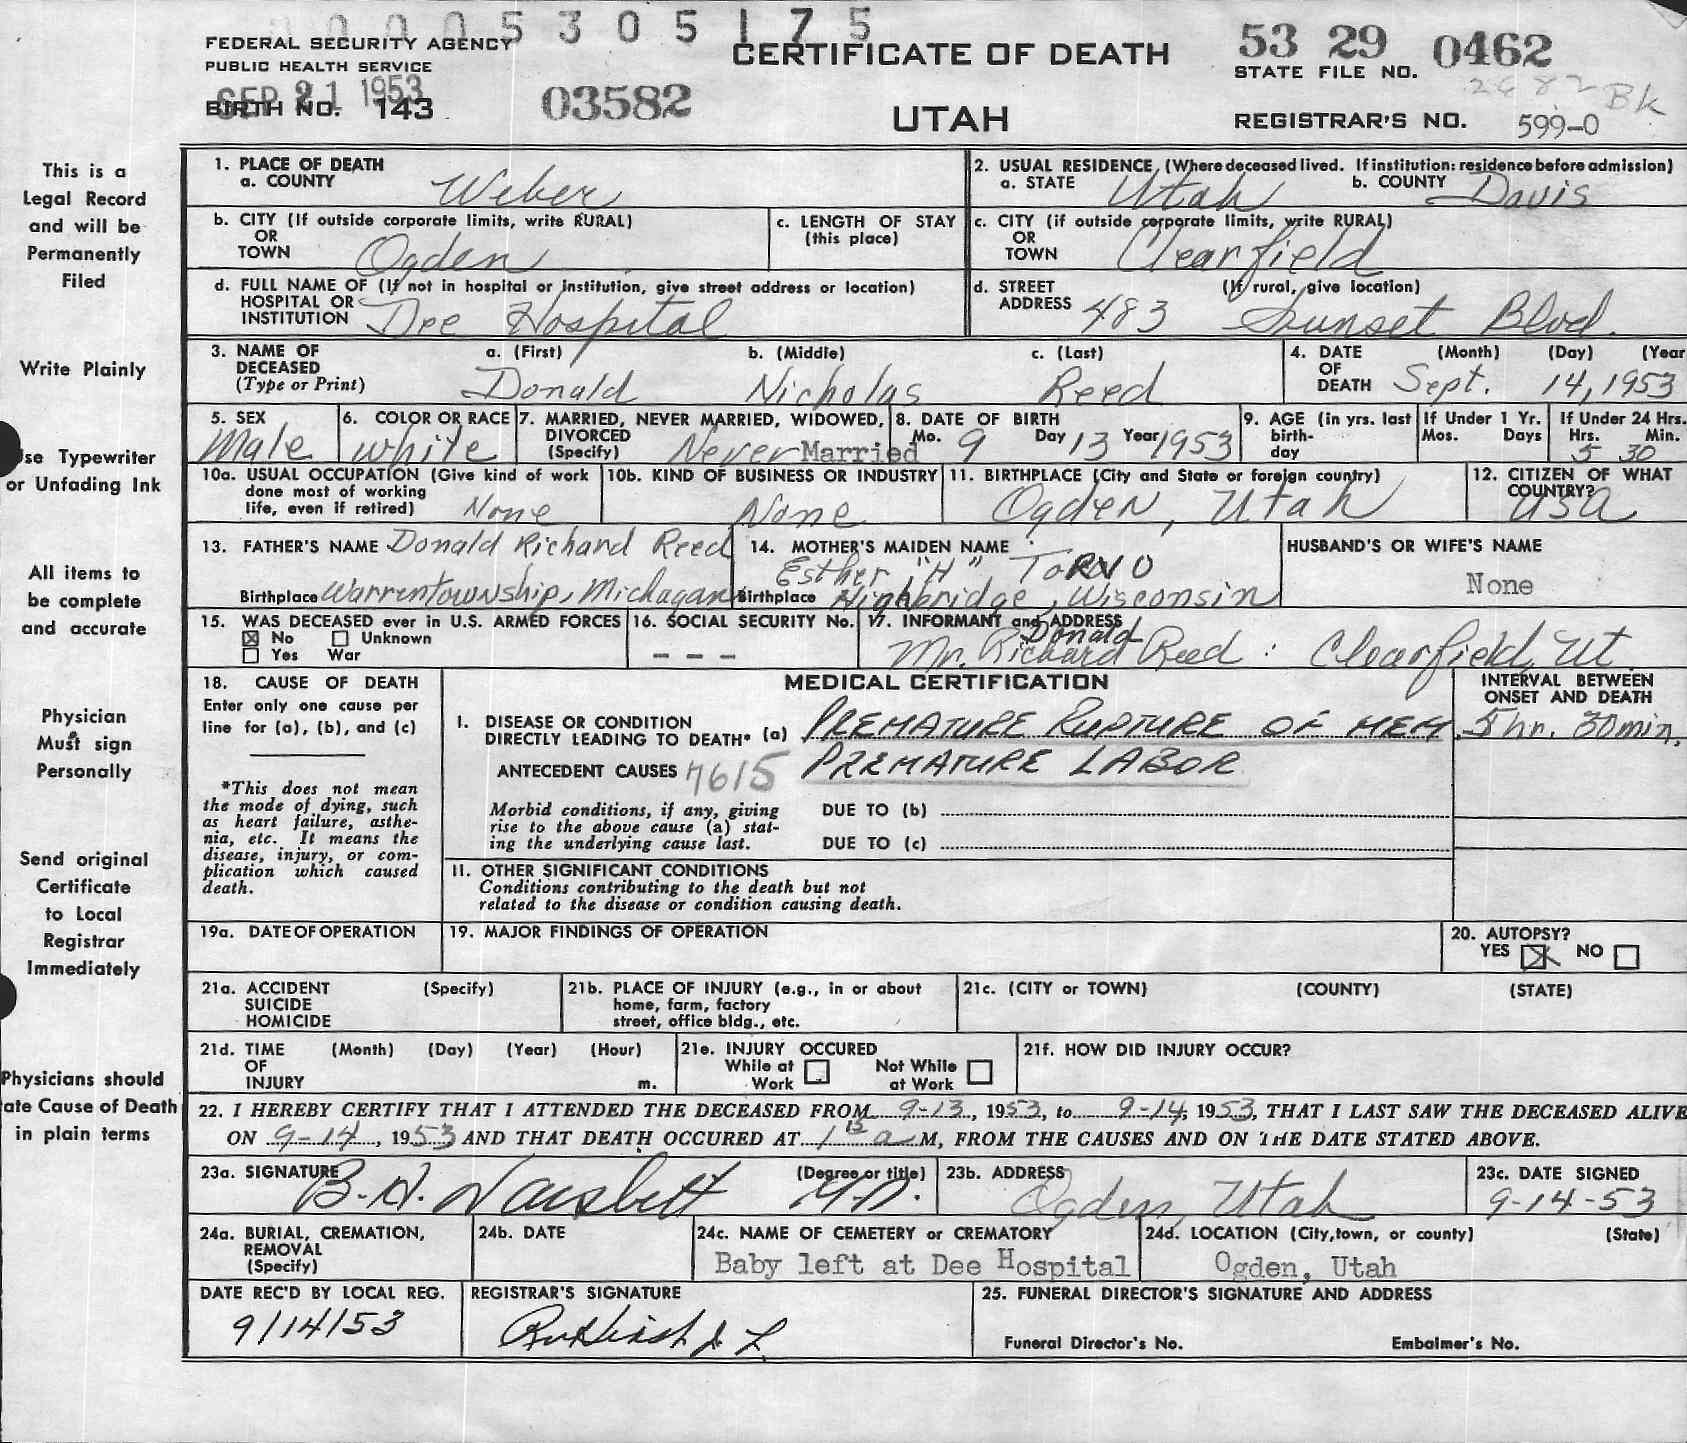 0005305175
FEDERAL SECURITY AGENCY
PUBLIC HEALTH SERVICE
CERTIFICATE OF DEATH
53 29 0462
STATE FILE NO.
SEP 21 1953
BIRTH NO. 143
03582
UTAH
2682 Bk
REGISTRAR'S NO. 599-0
This is a
Legal Record
and will be
Permanently
Filed
Write Plainly
se Typewriter
or Unfading Ink
All items to
be complete
and accurate
Physician
Must sign
Personally
Send original
Certificate
to Local
Registrar
Immediately
Physicians should
ate Cause of Death
in plain terms
1. PLACE OF DEATH
a. COUNTY Weber
2. USUAL RESIDENCE (Where deceased lived. If institution: residence before admission)
a. STATE Utah b. COUNTY Davis
b. CITY (If outside corporate limits, write RURAL)
OR
TOWN Ogden
c. LENGTH OF STAY
(this place)
c. CITY (if outside corporate limits, write RURAL)
OR
TOWN Clearfield
d. FULL NAME OF (If not in hospital or institution, give street address or location)
HOSPITAL OR
INSTITUTION Dee Hospital
d. STREET (If rural, give location)
ADDRESS 483 Sunset Blvd.
3. NAME OF DECEASED (Type or Print)
a. (First) b. (Middle) c. (Last)
Donald Nicholas Reed
4. DATE OF DEATH (Month) (Day) (Year
Sept. 14, 1953
5. SEX
Male
6. COLOR OR RACE
White
7. MARRIED, NEVER MARRIED, WIDOWED,
DIVORCED
(Specify) Never Married
8. DATE OF BIRTH
Mo. 9 Day 13 Year 1953
9. AGE (in yrs. last
birth-
day
If Under 1 Yr.
Mos. Days
If Under 24 Hrs.
Hrs. Min.
5 30
10a. USUAL OCCUPATION (Give kind of work
done most of working
life, even if retired) None
10b. KIND OF BUSINESS OR INDUSTRY
None
11. BIRTHPLACE (City and State or foreign country)
Ogden, Utah
12. CITIZEN OF WHAT
COUNTRY?
USA
13. FATHER'S NAME Donald Richard Reed
Birthplace Warrentownship, Michagan
14. MOTHER'S MAIDEN NAME
Esther "H" TORNO
Birthplace Highbridge, Wisconsin
HUSBAND'S OR WIFE'S NAME
None
15. WAS DECEASED ever in U.S. ARMED FORCES
No Unknown
Yes War
16. SOCIAL SECURITY No.
- - -
17. INFORMANT and ADDRESS
Donald
Mr. Richard Reed : Clearfield, Ut.
18. CAUSE OF DEATH
Enter only one cause per
line for (a), (b), and (c)
*This does not mean
the mode of dying, such
as heart failure, asthe-
nia, etc. It means the
disease, injury, or com-
plication which caused
death.
MEDICAL CERTIFICATION
INTERVAL BETWEEN
ONSET AND DEATH
I. DISEASE OR CONDITION
DIRECTLY LEADING TO DEATH* (a) PREMATURE RUPTURE OF MEM. 5 hr. 30 min.
ANTECEDENT CAUSES 7615 PREMATURE LABOR
Morbid conditions, if any, giving
rise to the above cause (a) stat-
ing the underlying cause last.
DUE TO (b)
DUE TO (c)
11. OTHER SIGNIFICANT CONDITIONS
Conditions contributing to the death but not
related to the disease or condition causing death.
19a. DATE OF OPERATION
19. MAJOR FINDINGS OF OPERATION
20. AUTOPSY?
YES NO
21a. ACCIDENT (Specify)
SUICIDE
HOMICIDE
21b. PLACE OF INJURY (e.g., in or about
home, farm, factory
street, office bldg., etc.
21c. (CITY or TOWN) (COUNTY) (STATE)
21d. TIME (Month) (Day) (Year) (Hour)
OF
INJURY m.
21e. INJURY OCCURED
While at Work
Not While at Work
21f. HOW DID INJURY OCCUR?
22. I HEREBY CERTIFY THAT I ATTENDED THE DECEASED FROM 9-13, 1953, to 9-14, 1953, THAT I LAST SAW THE DECEASED ALIVE
ON 9-14, 1953 AND THAT DEATH OCCURED AT 1 15 a M, FROM THE CAUSES AND ON THE DATE STATED ABOVE.
23a. SIGNATURE (Degree or title)
B.H. Naisbitt M.D.
23b. ADDRESS
Ogden, Utah
23c. DATE SIGNED
9-14-53
24a. BURIAL, CREMATION,
REMOVAL
(Specify)
24b. DATE
24c. NAME OF CEMETERY or CREMATORY
Baby left at Dee Hospital
24d. LOCATION (City,town, or county) (State)
Ogden, Utah
DATE REC'D BY LOCAL REG.
9/14/53
REGISTRAR'S SIGNATURE
25. FUNERAL DIRECTOR'S SIGNATURE AND ADDRESS
Funeral Director's No. Embalmer's No.